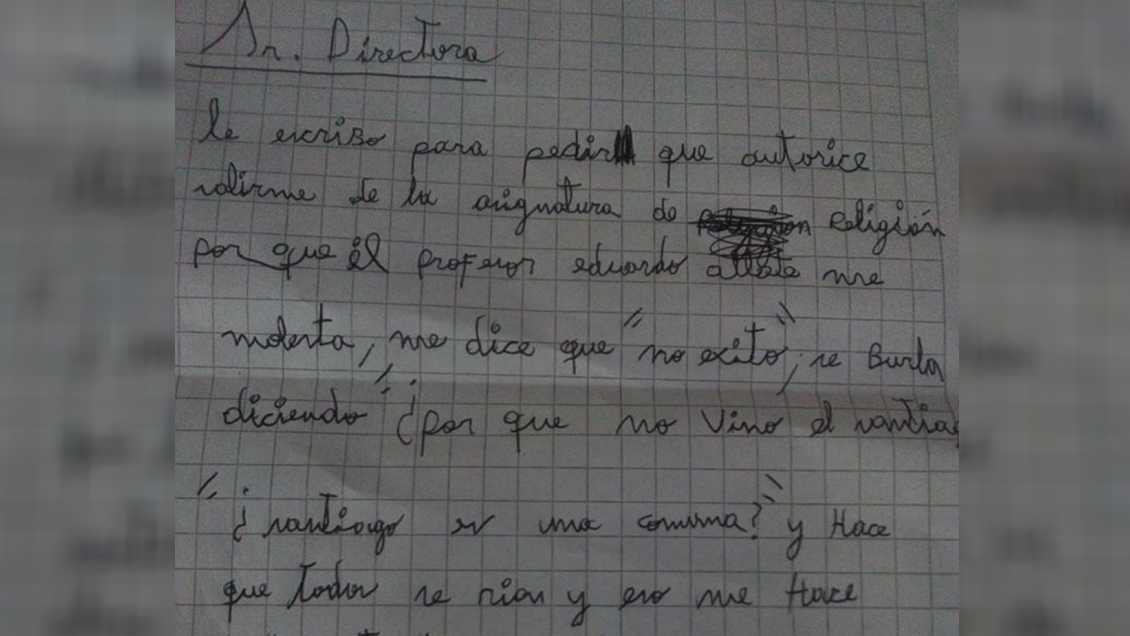 Sr. Directora
le escribo para pedir que autorice
salirme de la asignatura de Religión
por que él profesor eduardo me
molesta, me dice que "no exito", se Burla
diciendo "¿por que no Vino el santiag
"¿santiago es una ?" y Hace
que todos se rian y eso me Hace